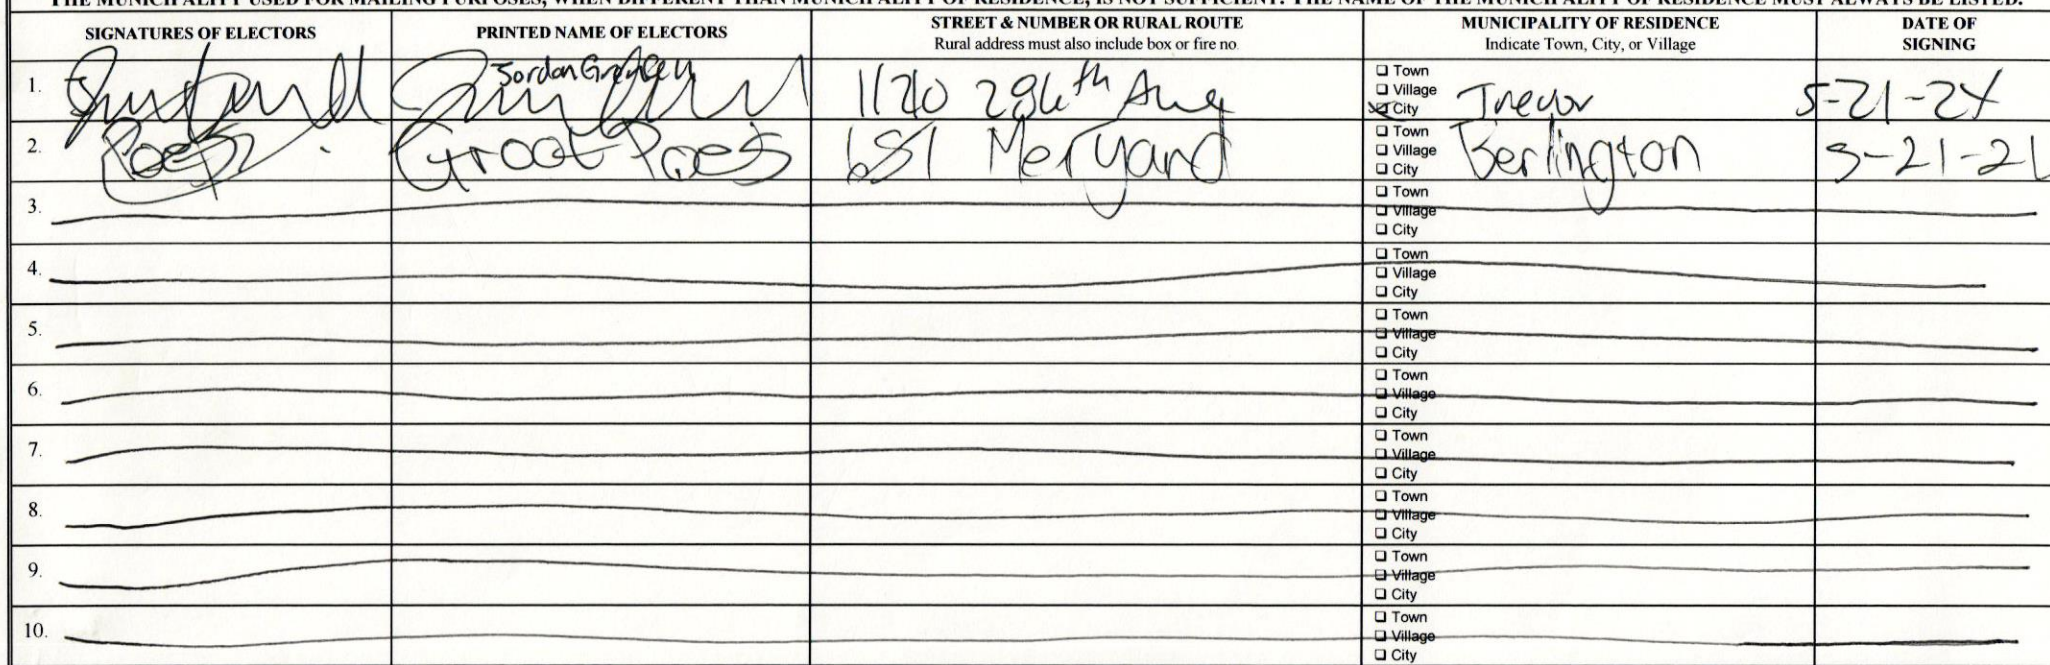 THE MUNICIPALITY USED FOR MAILING PURPOSES, WHEN DIFFERENT THAN MUNICIPALITY OF RESIDENCE, IS NOT SUFFICIENT. THE NAME OF THE MUNICIPALITY OF RESIDENCE MUST ALWAYS BE LISTED.
SIGNATURES OF ELECTORS
PRINTED NAME OF ELECTORS
STREET & NUMBER OR RURAL ROUTE
Rural address must also include box or fire no.
MUNICIPALITY OF RESIDENCE
Indicate Town, City, or Village
DATE OF
SIGNING
1.
Jordan
1120 286th Ave
Town
Village
City
Trevor
5-21-24
2.
Groot Poes
681 Meryard
Town
Village
City
Berlington
5-21-21
3.
Town
Village
City
4.
Town
Village
City
5.
Town
Village
City
6.
Town
Village
City
7.
Town
Village
City
8.
Town
Village
City
9.
Town
Village
City
10.
Town
Village
City